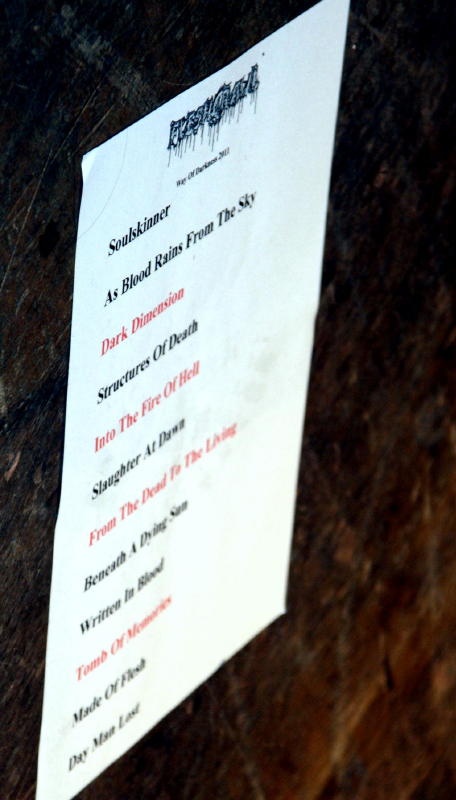 FLESHCRAWL
Way Of Darkness 2011
Soulskinner
As Blood Rains From The Sky
Dark Dimension
Structures Of Death
Into The Fire Of Hell
Slaughter At Dawn
From The Dead To The Living
Beneath A Dying Sun
Written In Blood
Tomb Of Memories
Made Of Flesh
Day Man Lost